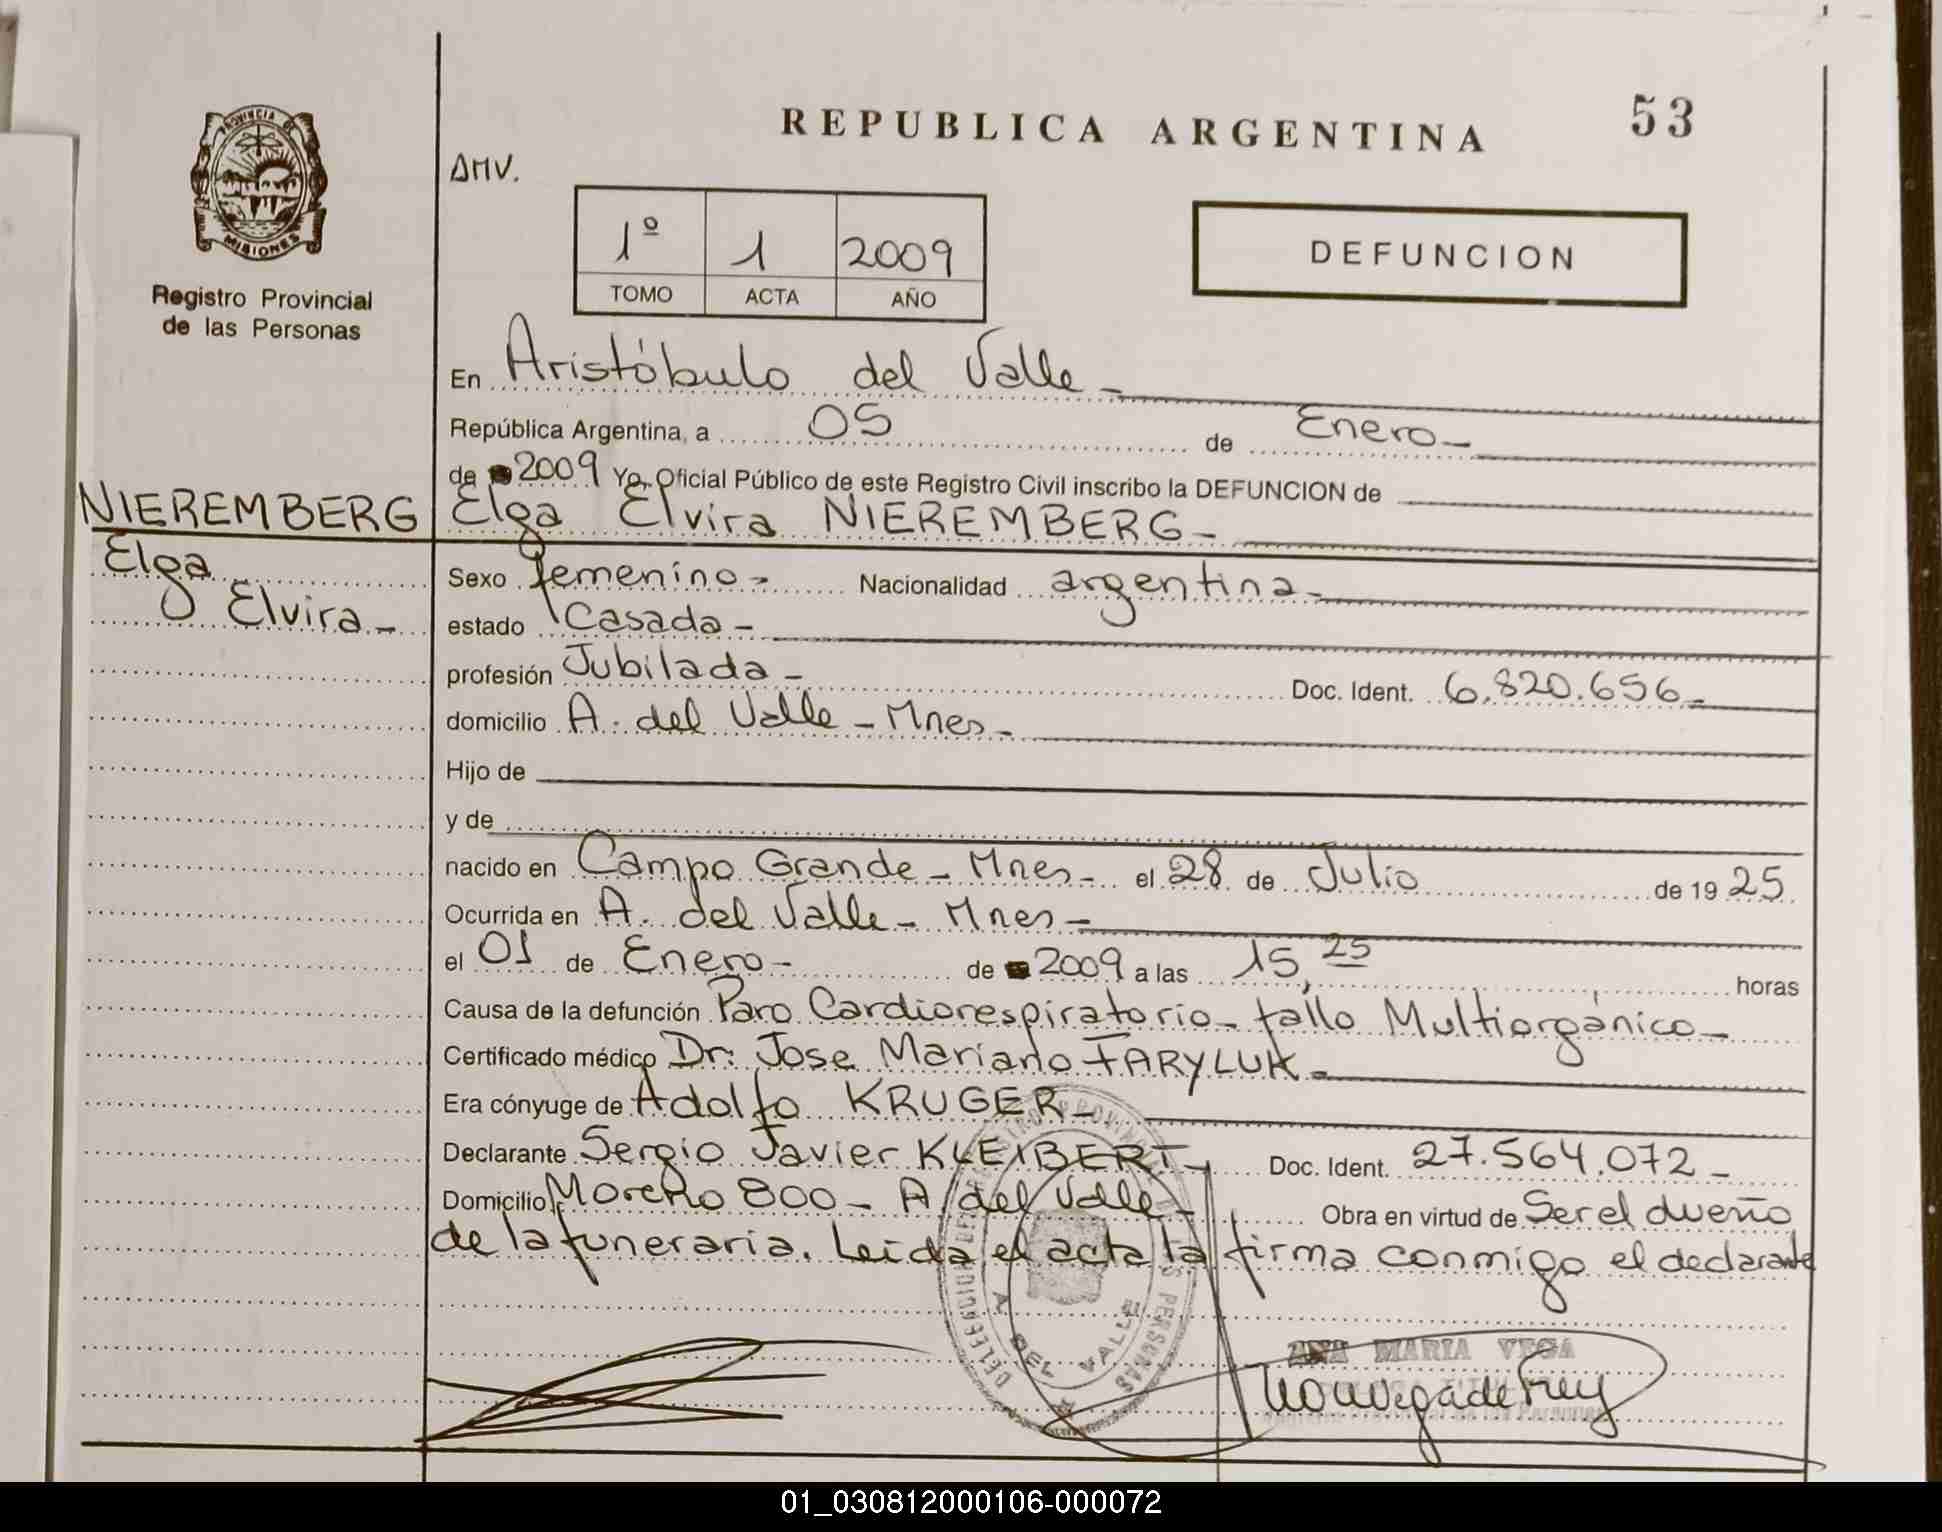 REPUBLICA ARGENTINA
53
PROVINCIA DE
MISIONES
Registro Provincial
de las Personas
AMV.
1º 1 2009
TOMO ACTA AÑO
DEFUNCION
En Aristóbulo del Valle
República Argentina, a 05 de Enero
de 2009 Yo, Oficial Público de este Registro Civil inscribo la DEFUNCION de
NIEREMBERG
Elga
Elvira
Elga Elvira NIEREMBERG
Sexo femenino Nacionalidad argentina
estado Casada
profesión Jubilada Doc. Ident. 6.820.656
domicilio A. del Valle - Mnes
Hijo de
y de
nacido en Campo Grande - Mnes - el 28 de Julio de 1925
Ocurrida en A. del Valle - Mnes
el 01 de Enero - de 2009 a las 15,25 horas
Causa de la defunción Paro Cardiorespiratorio - fallo Multiorgánico
Certificado médico Dr: Jose Mariano FARYLUK
Era cónyuge de Adolfo KRUGER
Declarante Sergio Javier KLEIBERT Doc. Ident. 27.564.072
Domicilio Moreno 800 - A. del Valle Obra en virtud de Ser el dueño
de la funeraria. Leída el acta la firma conmigo el declarante
A. DEL VALLE
ANA MARIA VEGA
01_030812000106-000072